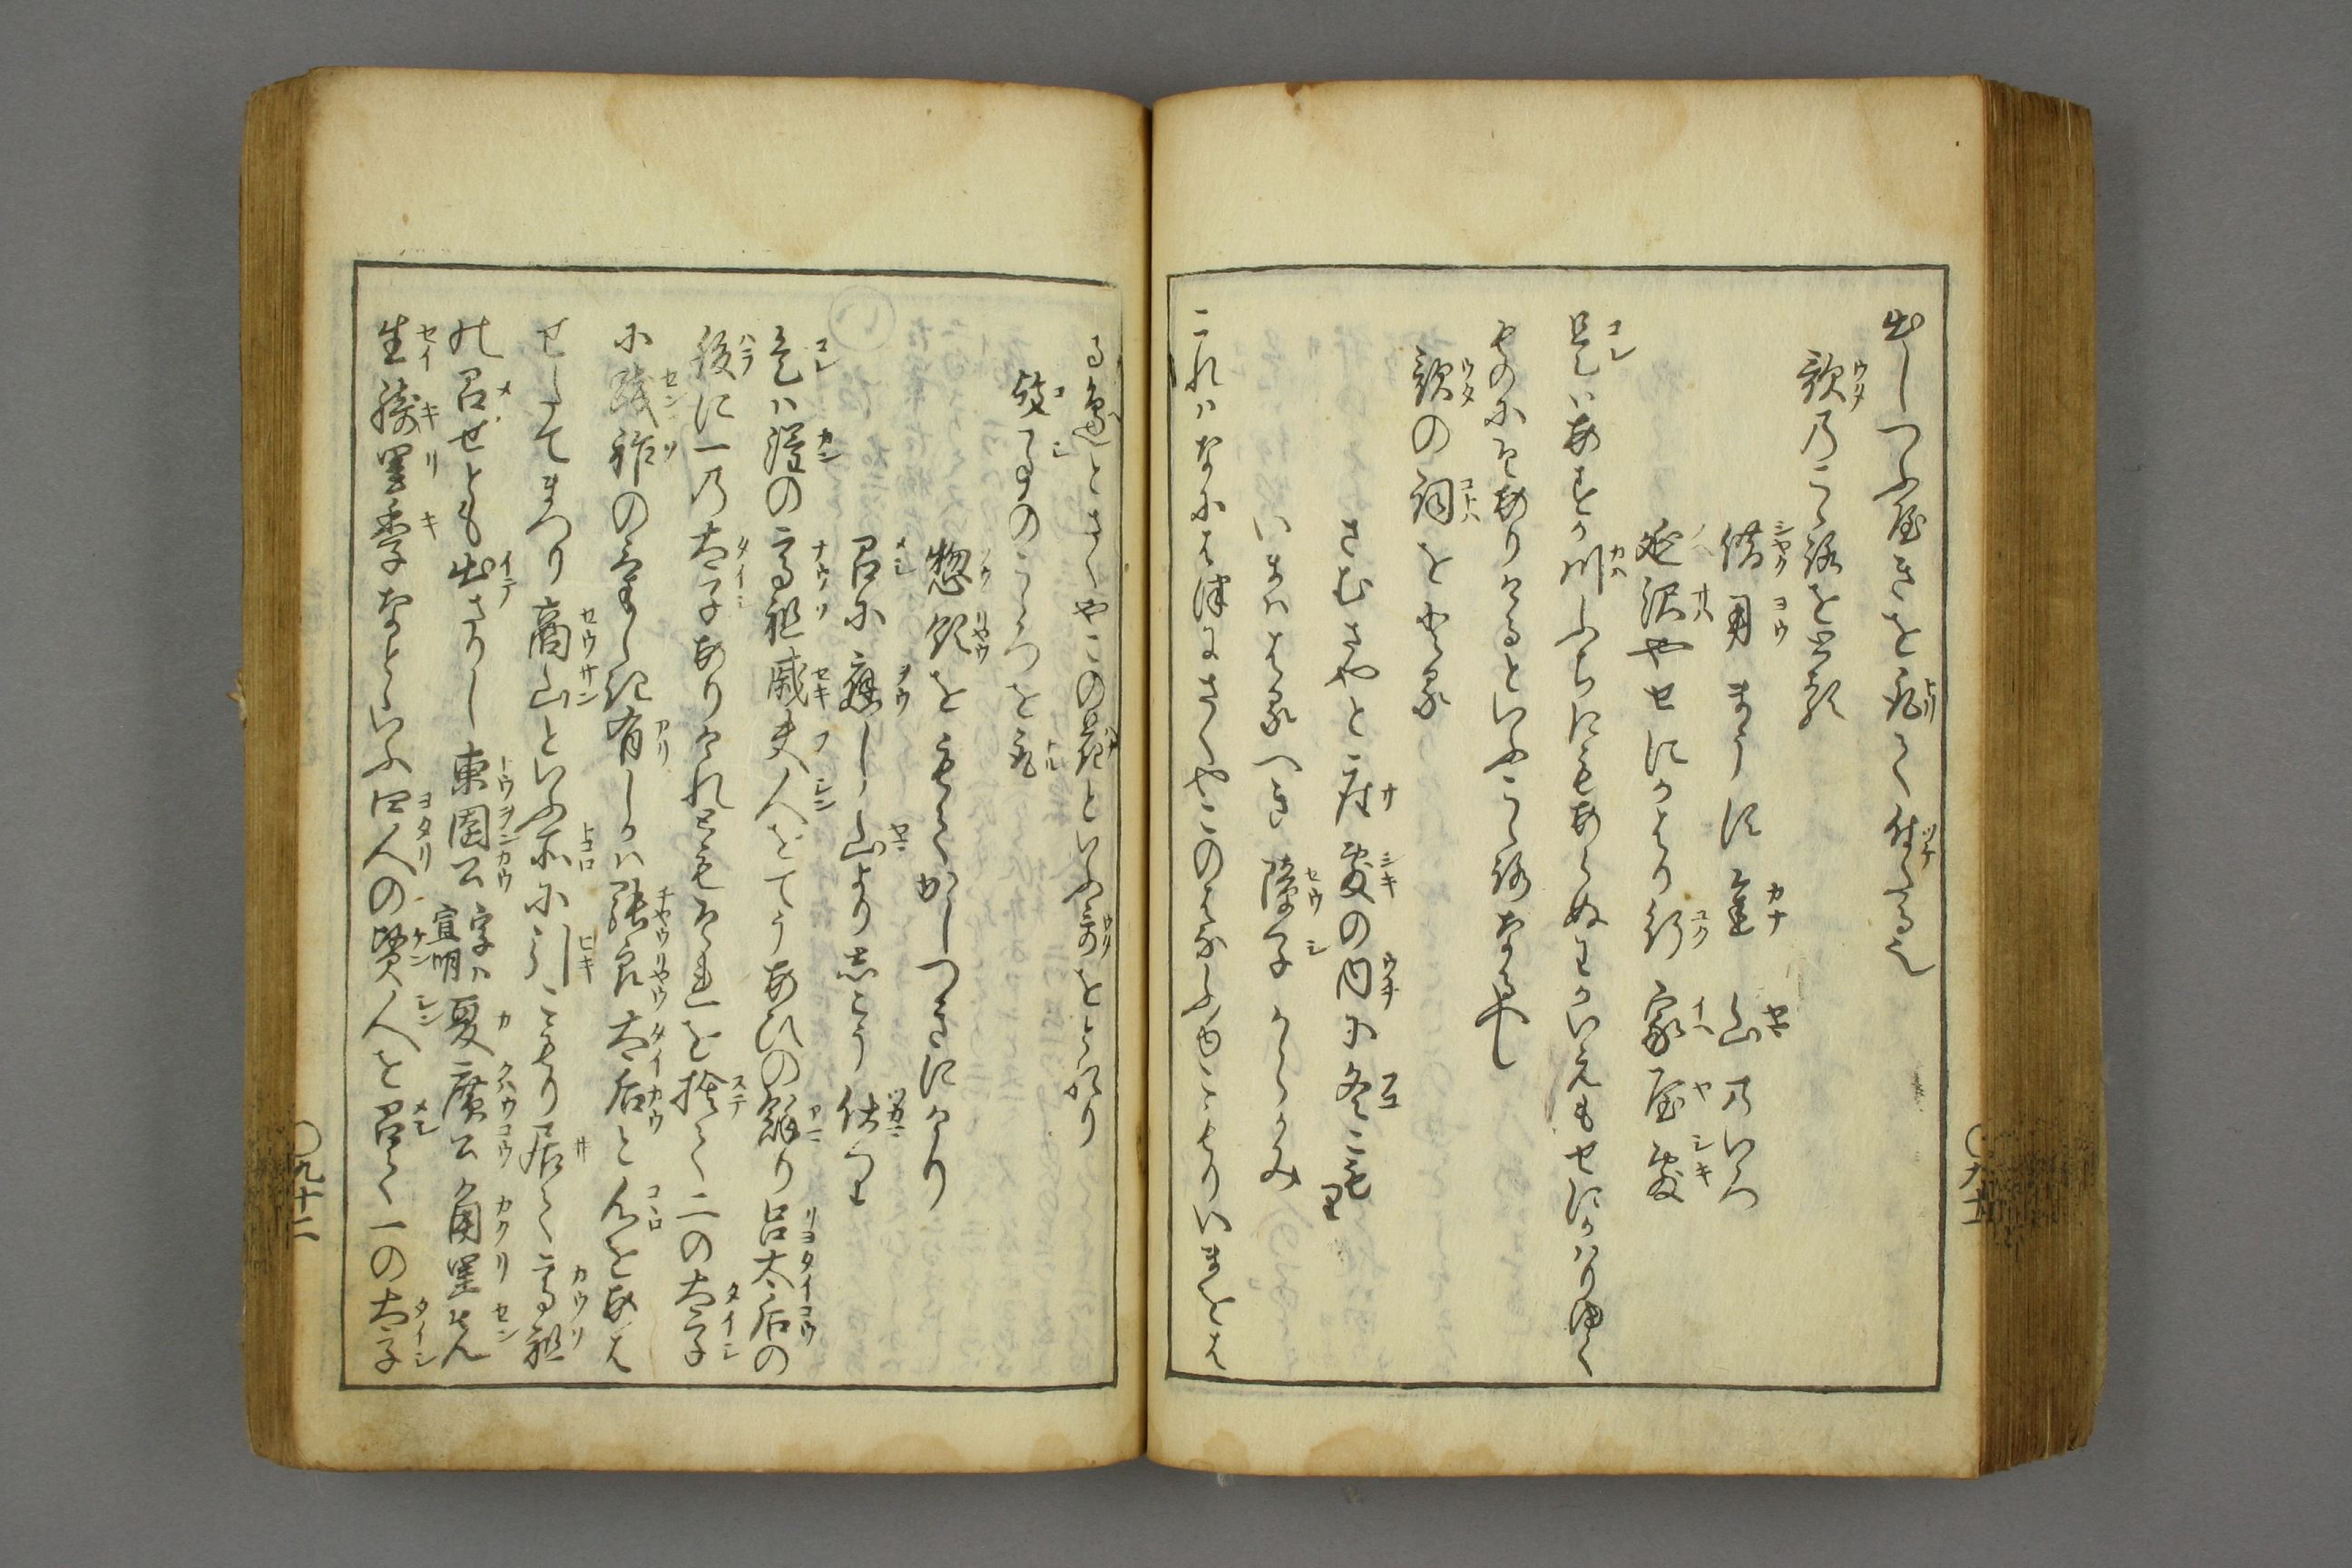 出しつゝ屋きを取て付たる也
歌乃こゝ路を出歌
借用まうす金山乃いろ
延沢やせにかはり行家屋敷
是ハあすか川ふちにもあらぬわかいえもせにかハりゆく
ものにそありけるといふこゝ路なるへし
歌の詞をとる
さむさやと座敷の内に冬こもり
いまははるへき障子からかみ
これハなには津にさくやこのはなふゆこもりいまをは
る邊とさくやこの花といふ哥をとれり
故事のこゝろを取
惣領をもてかしつきにけり
召に應し山より出こう仕つり
是ハ漢の高祖戚夫人をてうあひの餘り呂太后の
後に一乃太子ありけれともそれを捨て二の太子
に践祚のこゝろさし有しかハ張良太后と心をあは
せしたてまつり商山といふ所に引こもり居て高祖
の召せとも出さりし東園公字ハ宣明夏廣公角里せん
生綺里季なといふ四人の賢人を召て一の太子
〇九十二